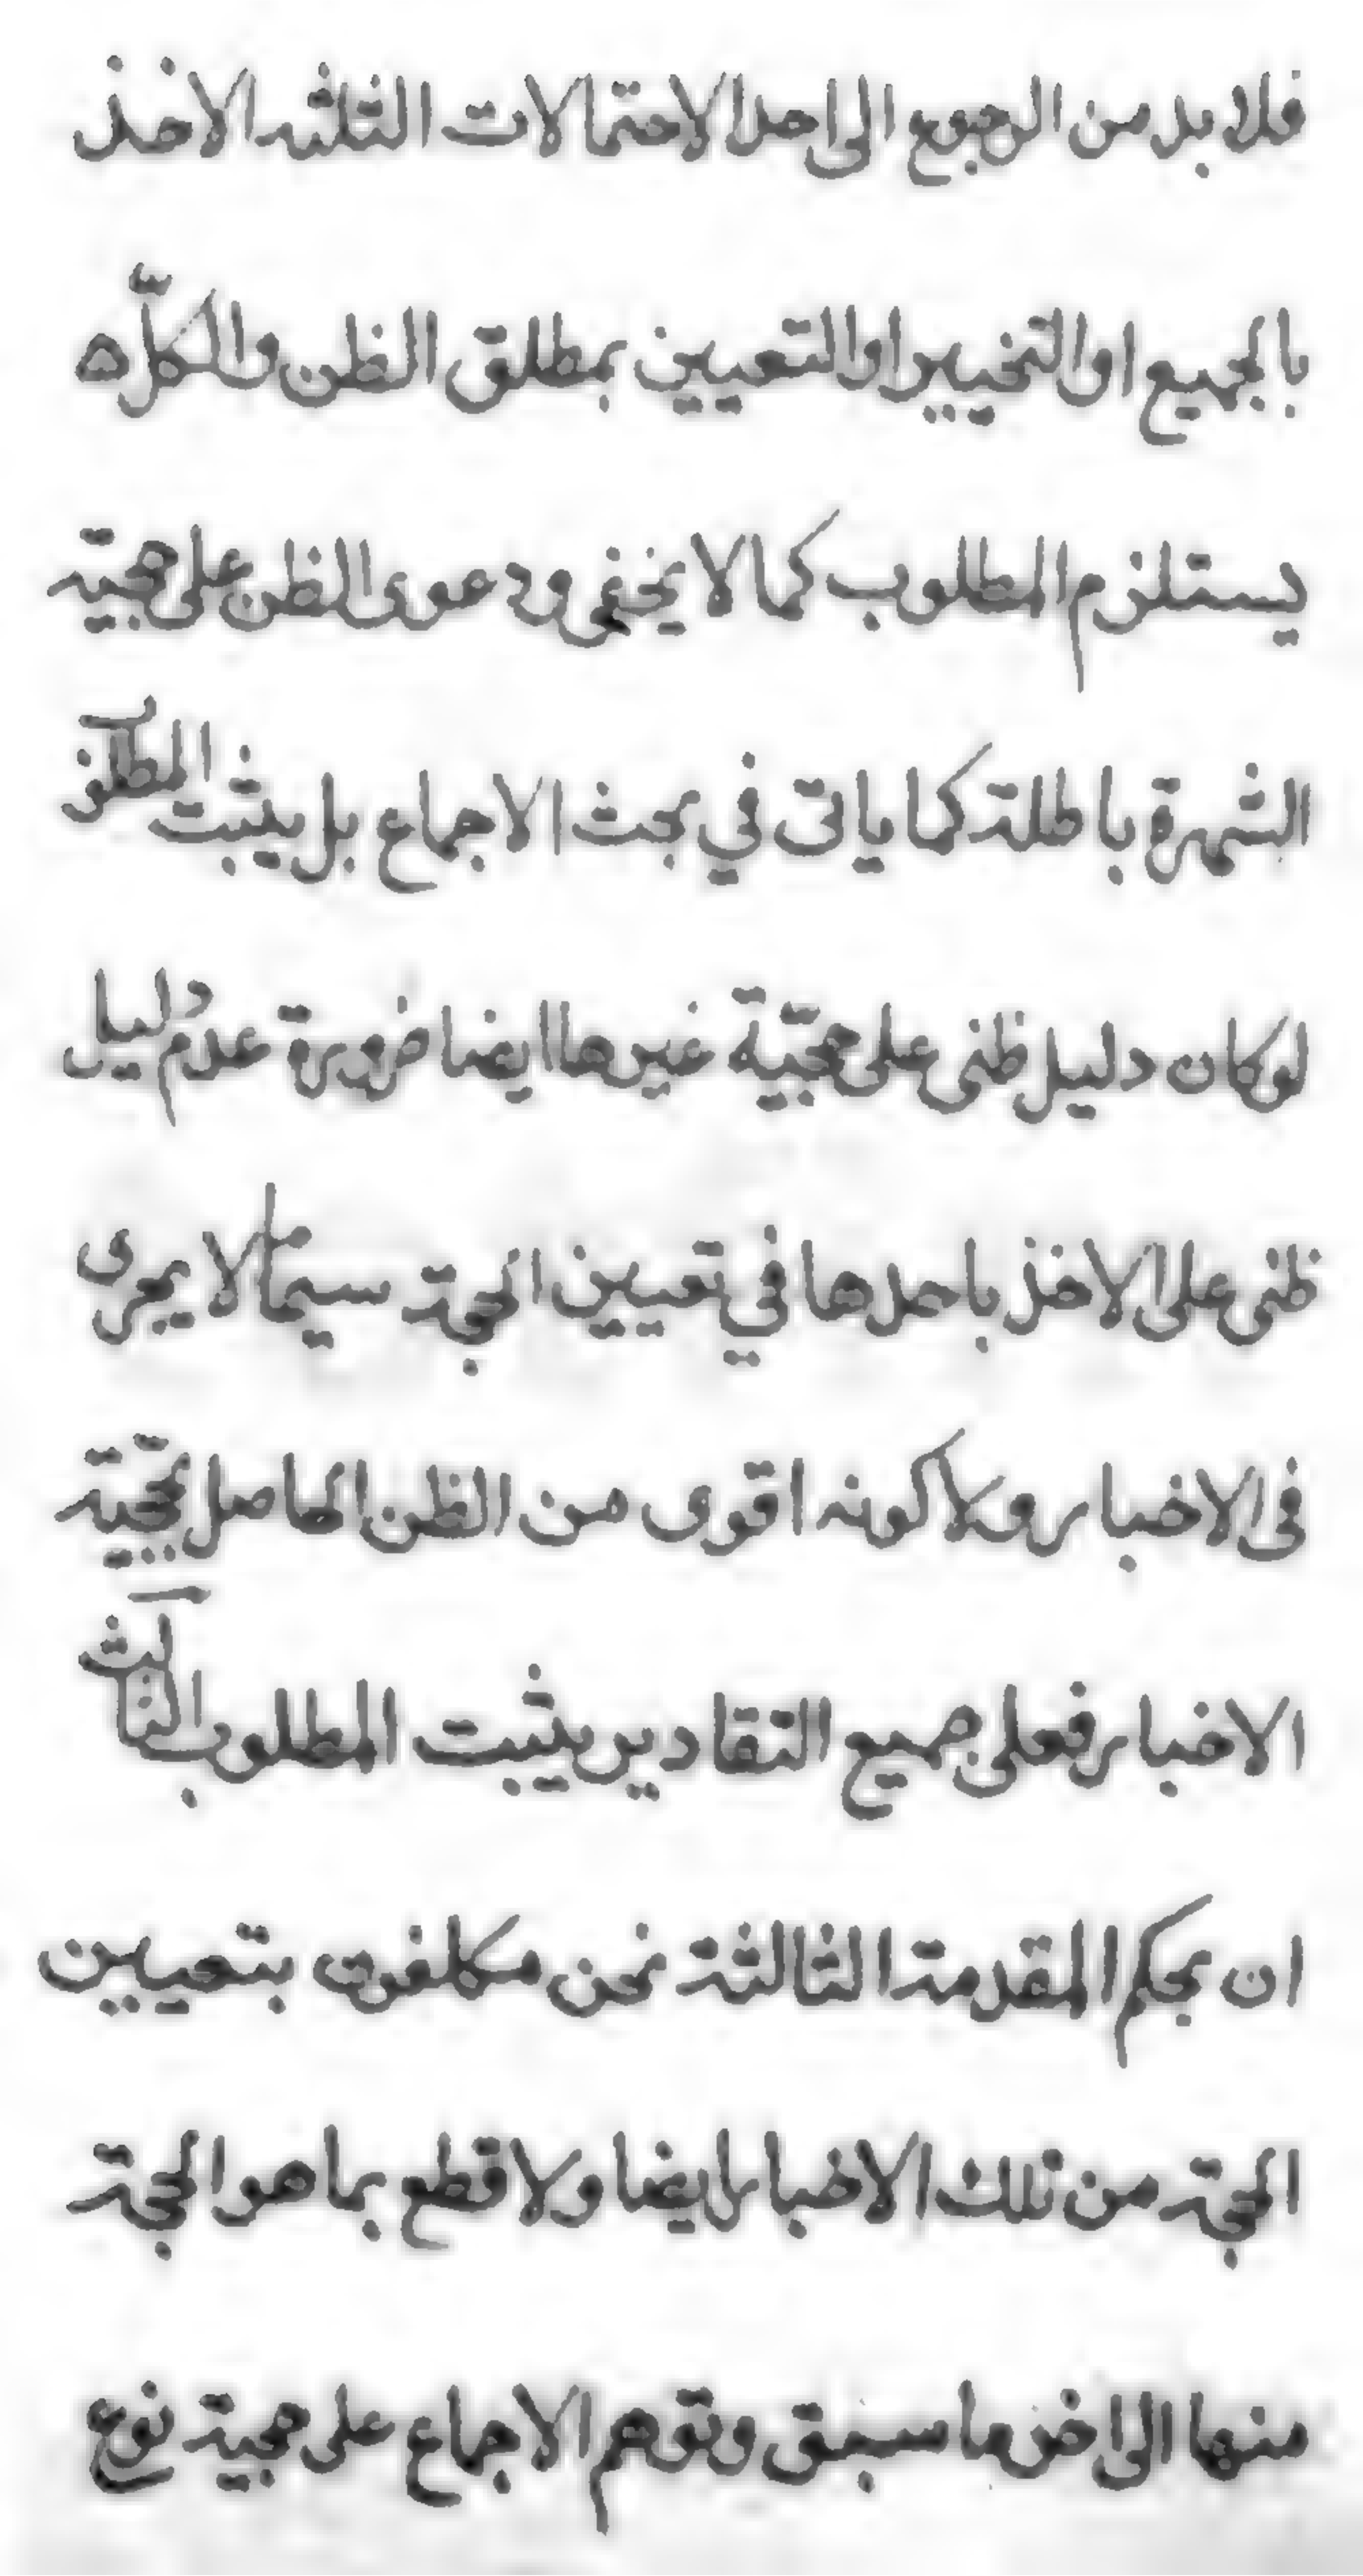 فلا بد من الرجوع الى احد الاحتمالات الثلثه الاخذ
بالجميع او التخيير او التعيين بمطلق الظن والكلّ
يستلزم المطلوب كما لا يخفى ودعوى الظن على حجية
الشهرة باطلة كما ياتى في بحث الاجماع بل يثبت المطلوب
لو كان دليل ظنى على حجّية غيرها ايضا ضرورة عدم دليل
ظنى على الاخذ باحدها في تعيين الحجة سيما لا يجرى
فى الاخبار ولا كونه اقوى من الظن الحاصل بحجّية
الاخبار فعلى جميع التقادير يثبت المطلوب الثالث
ان بحكم المقدمة الثالثة نحن مكلفون بتعيين
الحجة من تلك الاخبار ايضا ولا قطع بما هو الحجة
منها الى اخر ما سبق وتوهم الاجماع على حجية نوع